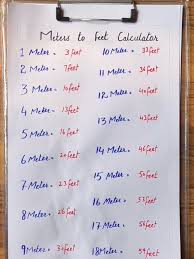 Meters to feet Calculator
1 Meter = 3 feet
2 Meter = 7 feet
3 Meter = 10 feet
4 Meter = 13 feet
5 Meter = 16 feet
6 Meter = 20 feet
7 Meter = 23 feet
8 Meter = 26 feet
9 Meter = 30 feet
10 Meter = 33 feet
11 Meter = 36 feet
12 Meter = 40 feet
13 Meter = 43 feet
14 Meter = 46 feet
15 Meter = 50 feet
16 Meter = 53 feet
17 Meter = 56 feet
18 Meter = 59 feet